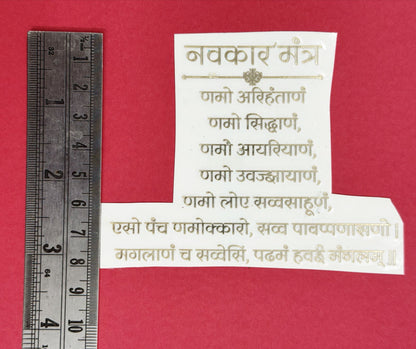 नवकार मंत्र
णमो अरिहंताणं
णमो सिद्धाणं,
णमो आयरियाणं,
णमो उवज्झायाणं,
णमो लोए सव्वसाहूणं,
एसो पंच णमोक्कारो, सव्व पावप्पणासणो ।
मगलाणं च सव्वेसिं, पढमं हवई मंगलम् ॥
½
32
1
2
3
1
2
3
4
5
6
7
8
9
10